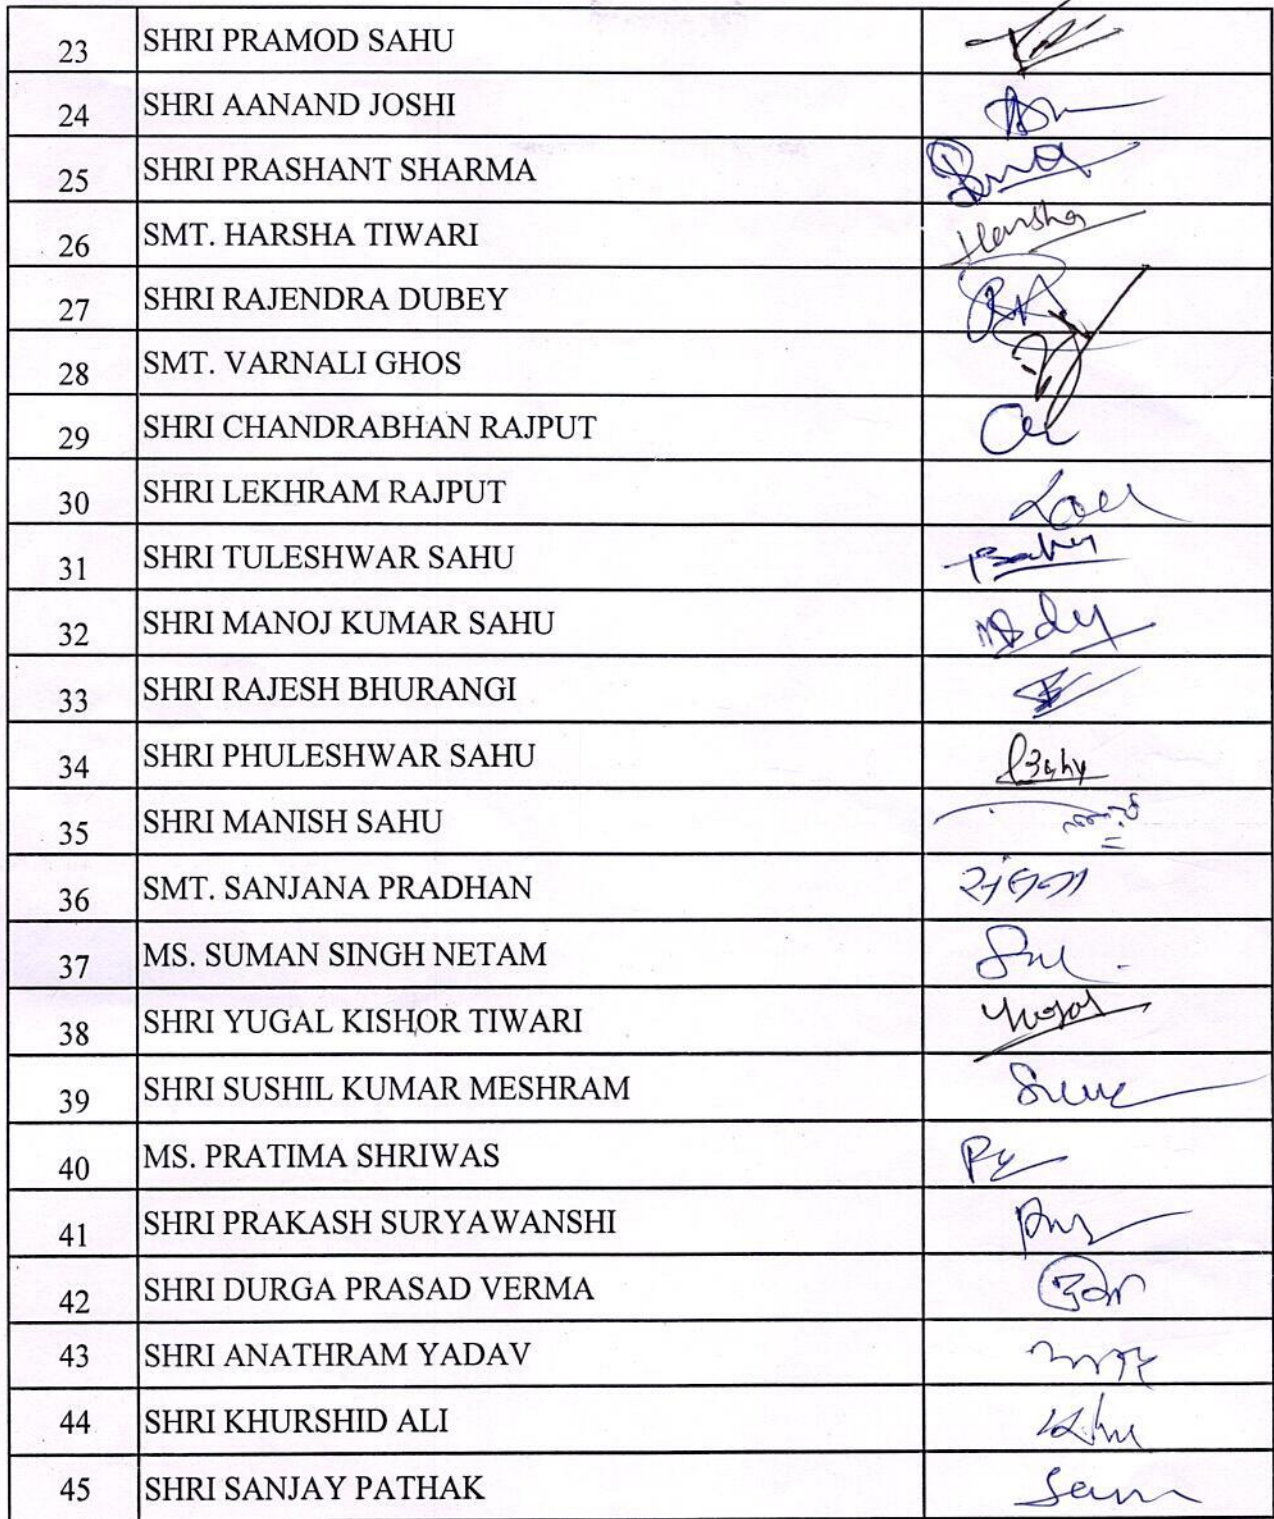 23 SHRI PRAMOD SAHU
24 SHRI AANAND JOSHI
25 SHRI PRASHANT SHARMA
26 SMT. HARSHA TIWARI Harsha
27 SHRI RAJENDRA DUBEY
28 SMT. VARNALI GHOS
29 SHRI CHANDRABHAN RAJPUT
30 SHRI LEKHRAM RAJPUT
31 SHRI TULESHWAR SAHU
32 SHRI MANOJ KUMAR SAHU
33 SHRI RAJESH BHURANGI
34 SHRI PHULESHWAR SAHU
35 SHRI MANISH SAHU
36 SMT. SANJANA PRADHAN
37 MS. SUMAN SINGH NETAM
38 SHRI YUGAL KISHOR TIWARI Yugal
39 SHRI SUSHIL KUMAR MESHRAM
40 MS. PRATIMA SHRIWAS
41 SHRI PRAKASH SURYAWANSHI
42 SHRI DURGA PRASAD VERMA
43 SHRI ANATHRAM YADAV
44 SHRI KHURSHID ALI
45 SHRI SANJAY PATHAK